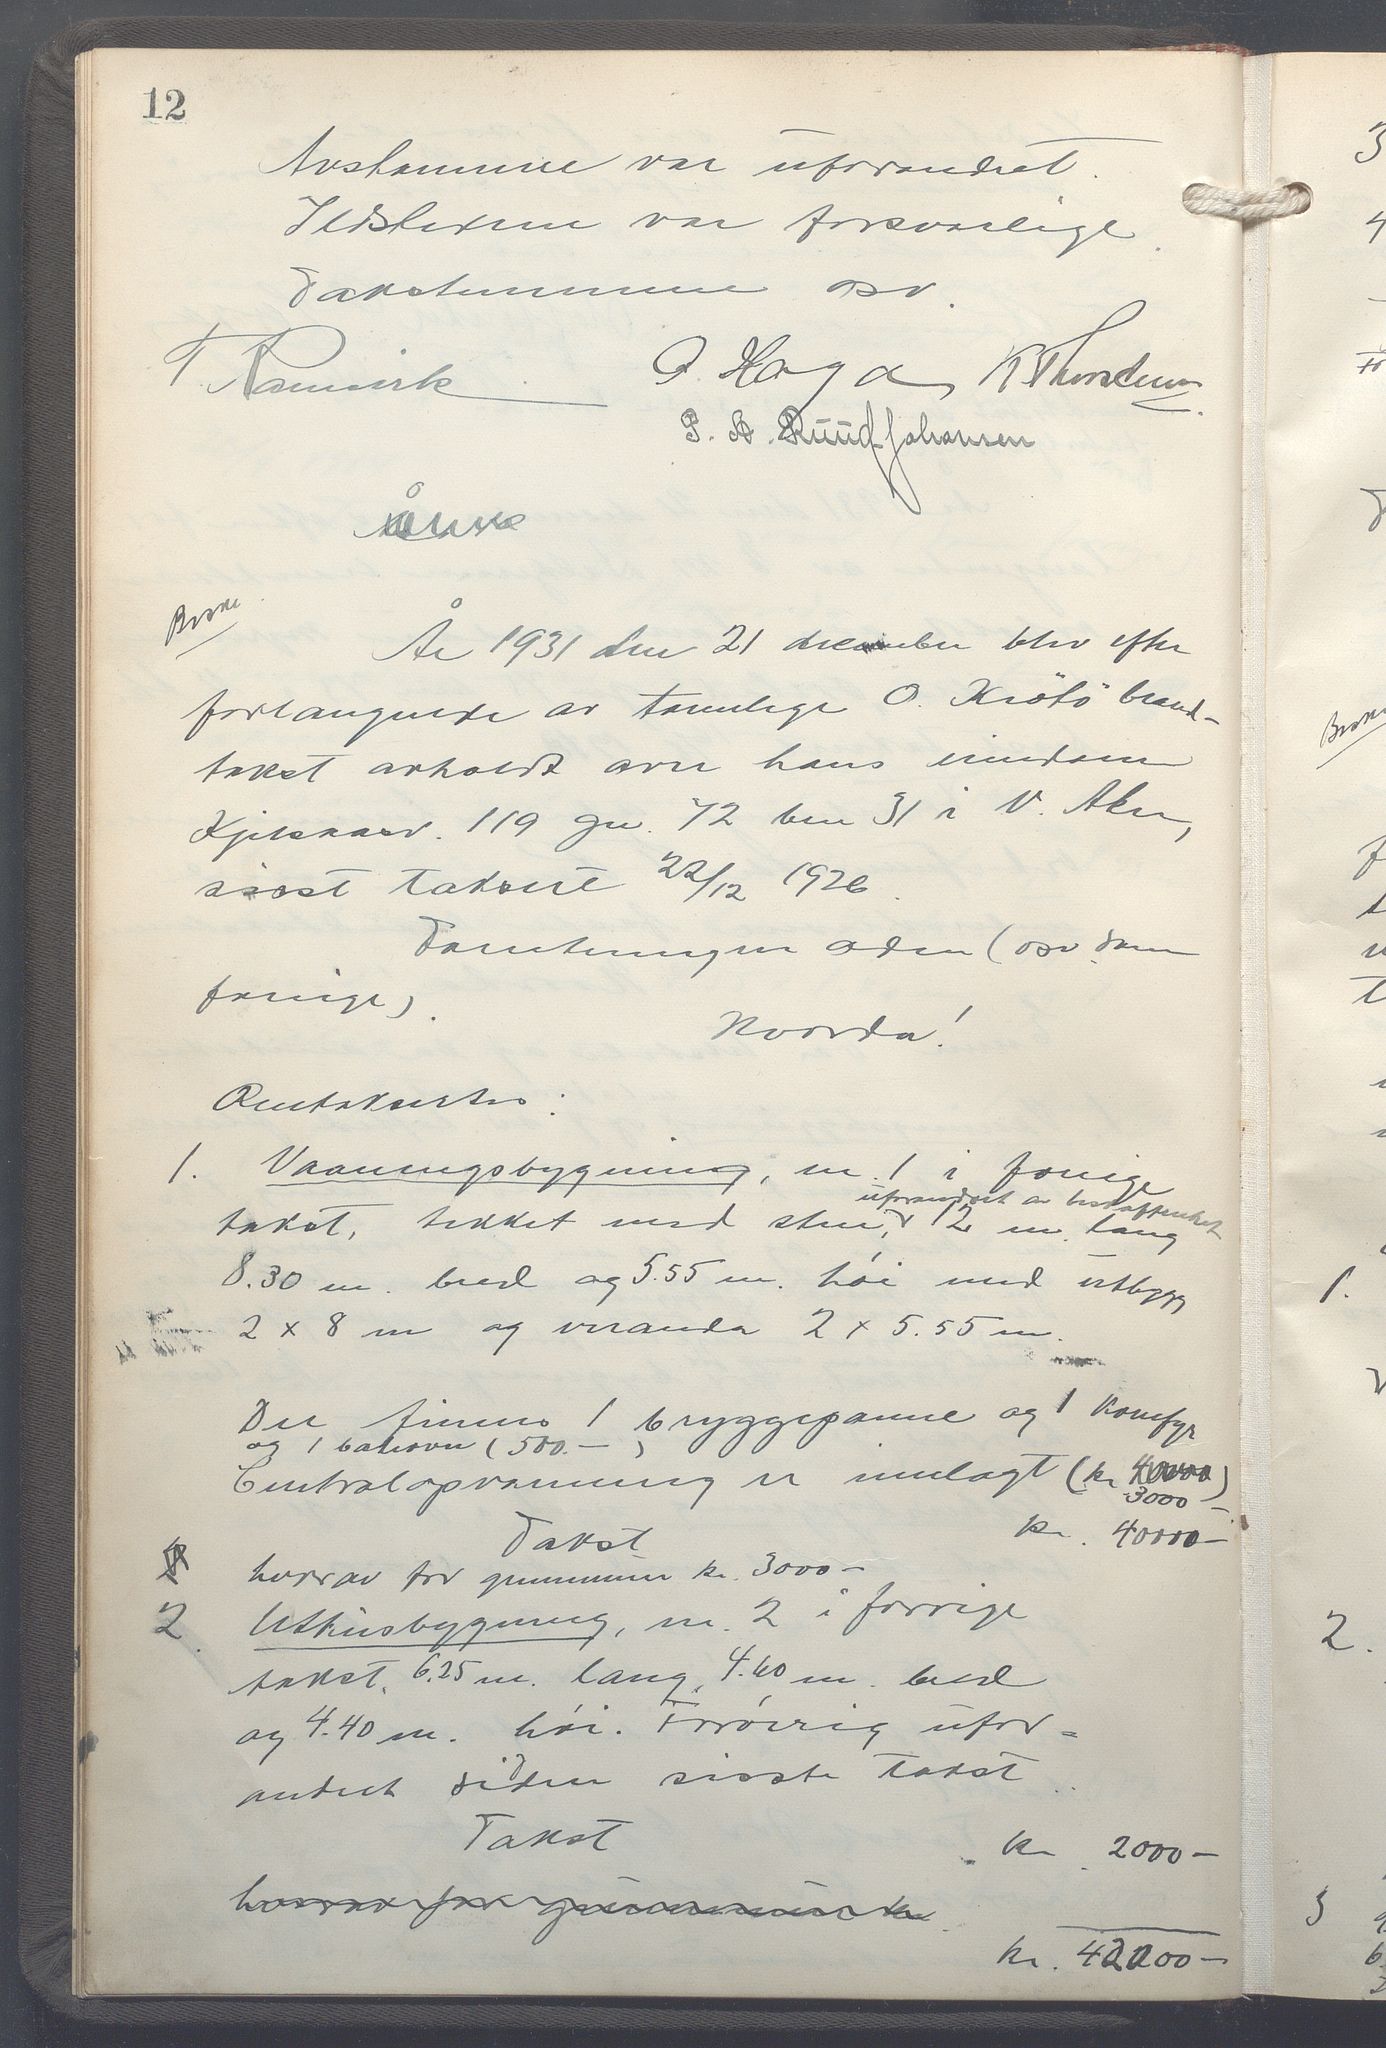 12
Avstannene var uforandret.
Ildstedene var forsvarlige.
Takstemmene osv.
T. Ramvik O. Haga K Thorstensen
P. A. Ruud Johansen
År 1931 den 21 december blev efter
forlangende av tannlege O. Krötö brand-
takst avholdt over hans eiendom
Kjelsaasv. 119 gn. 72 bnr 31 i V. Aker,
sisst taksert 22/12 1926.
Forretningen aden (osv. som
forrige).
Hvorda!
Omtaksertes:
1. Vaaningsbygning, nr. 1 i forrige
uforandret av beskaffenhet
takst, tekket med sten, 12 m. lang
8.30 m. bred og 5.55 m. høi med utbygg
2 x 8 m og veranda 2 x 5.55 m.
Der finnes 1 bryggepanne og 1 komfyr
og 1 bakovn (500.—)
Centralopvarming er innlagt (kr
3000—)
Takst kr. 40000—
hvorav for grunnmur kr. 3000—
2. Uthusbygning, nr. 2 i forrige
takst, 6.25 m. lang, 4.60 m. bred
og 4.40 m. høi. Forøvrig ufor-
andret siden sisste takst.
Takst kr. 2000—
hvorav for grunnmur kr
kr. 42000—